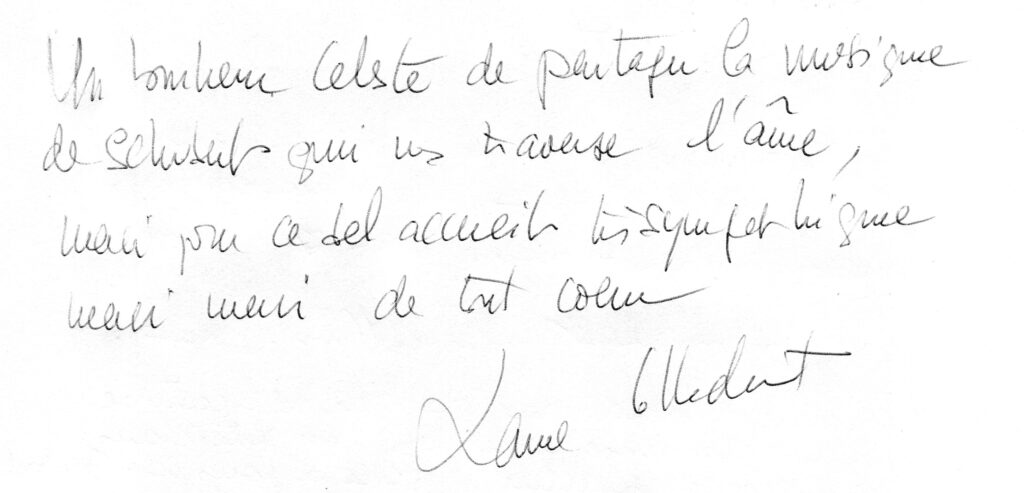 Un bonheur celeste de partager la musique
de Schubert qui nous traverse l'âme,
merci pour ce bel accueil très sympathique
merci merci de tout coeur